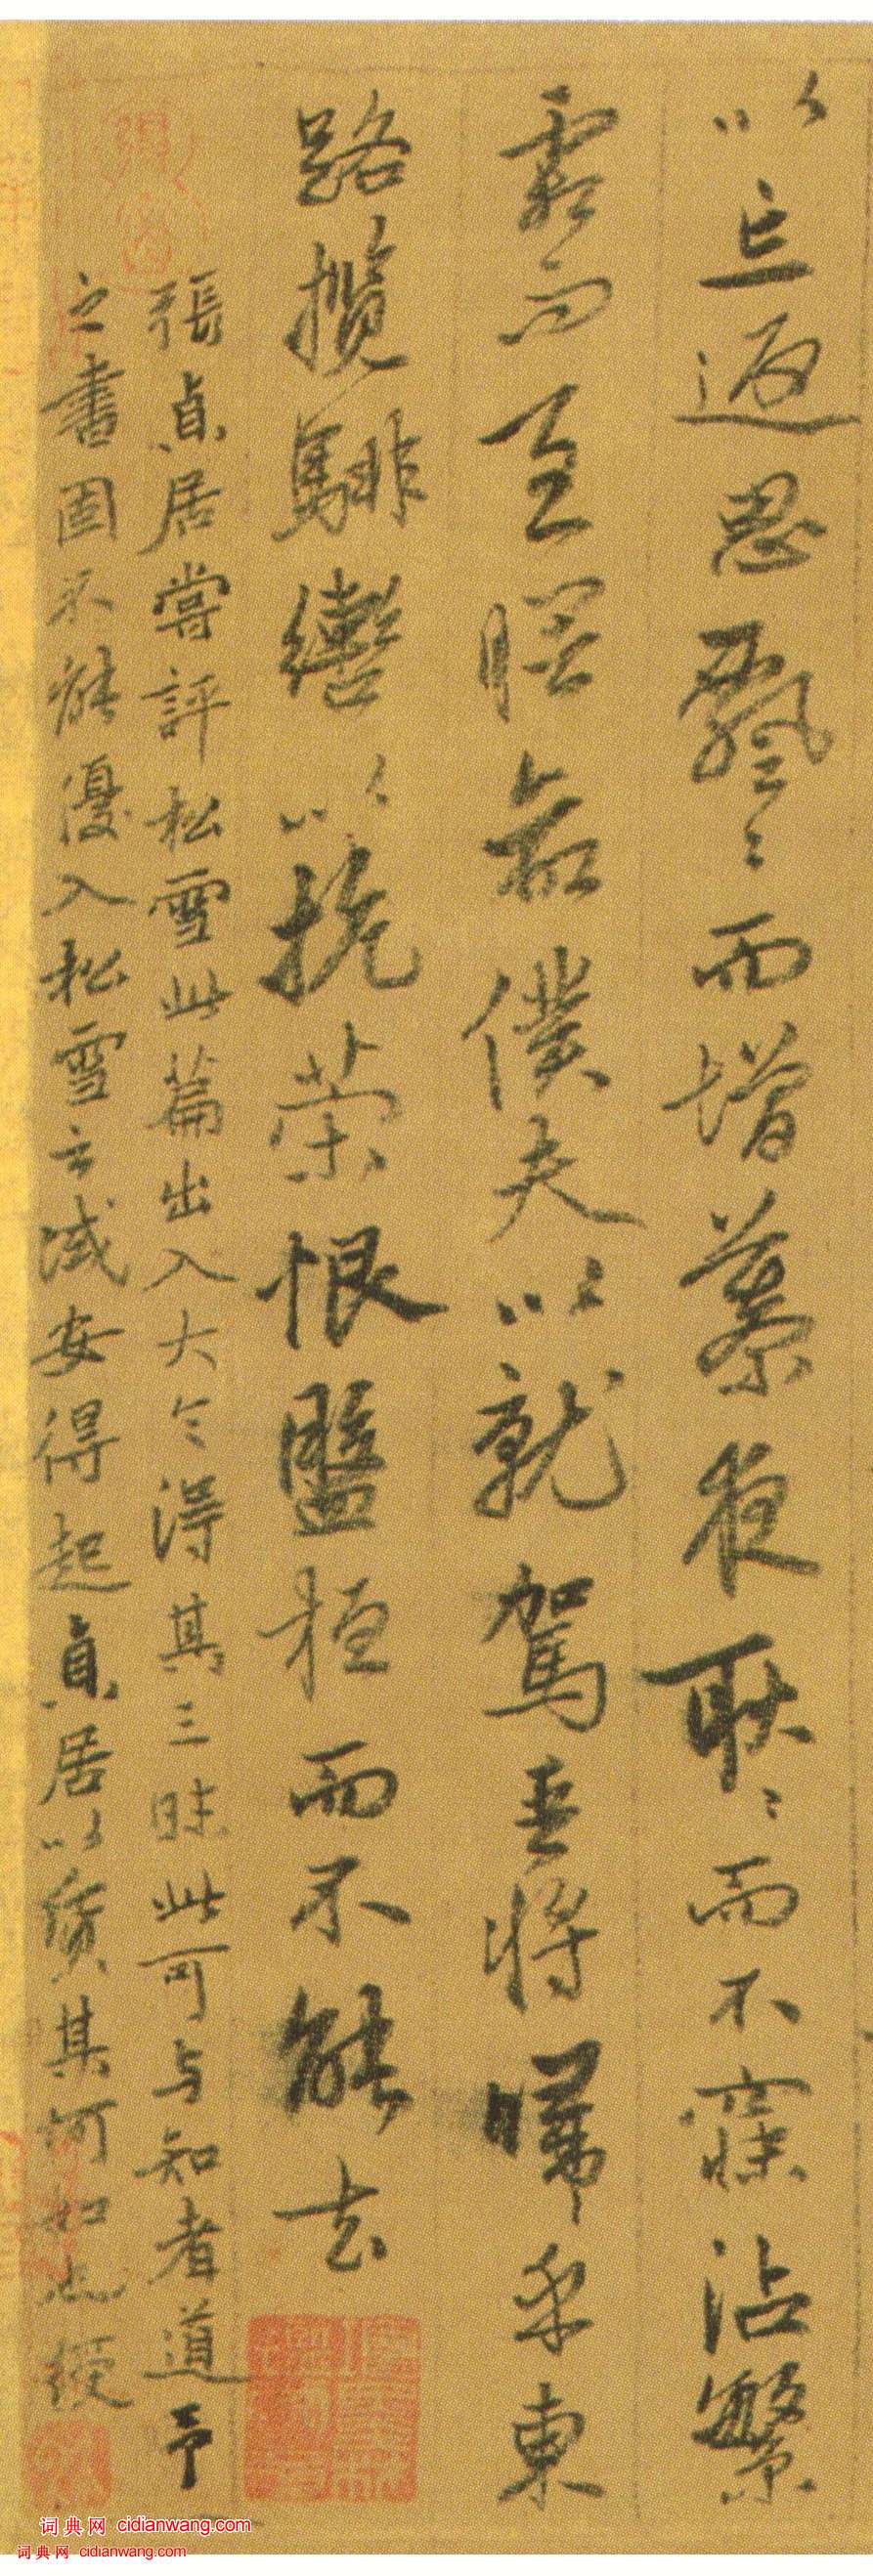 以忘返思飄々而增慕夜耿々而不寐沾繁
霜而至曙命僕夫以就駕吾將歸乎東
路攬騑轡以抗策悵盤桓而不能去
張貞居嘗評松雪此篇出入大令得其三昧此可与知者道予
之書固不能優入松雪之域安得起貞居以質其何如也
词典网 cidianwang.com
词典网 cidianwang.com